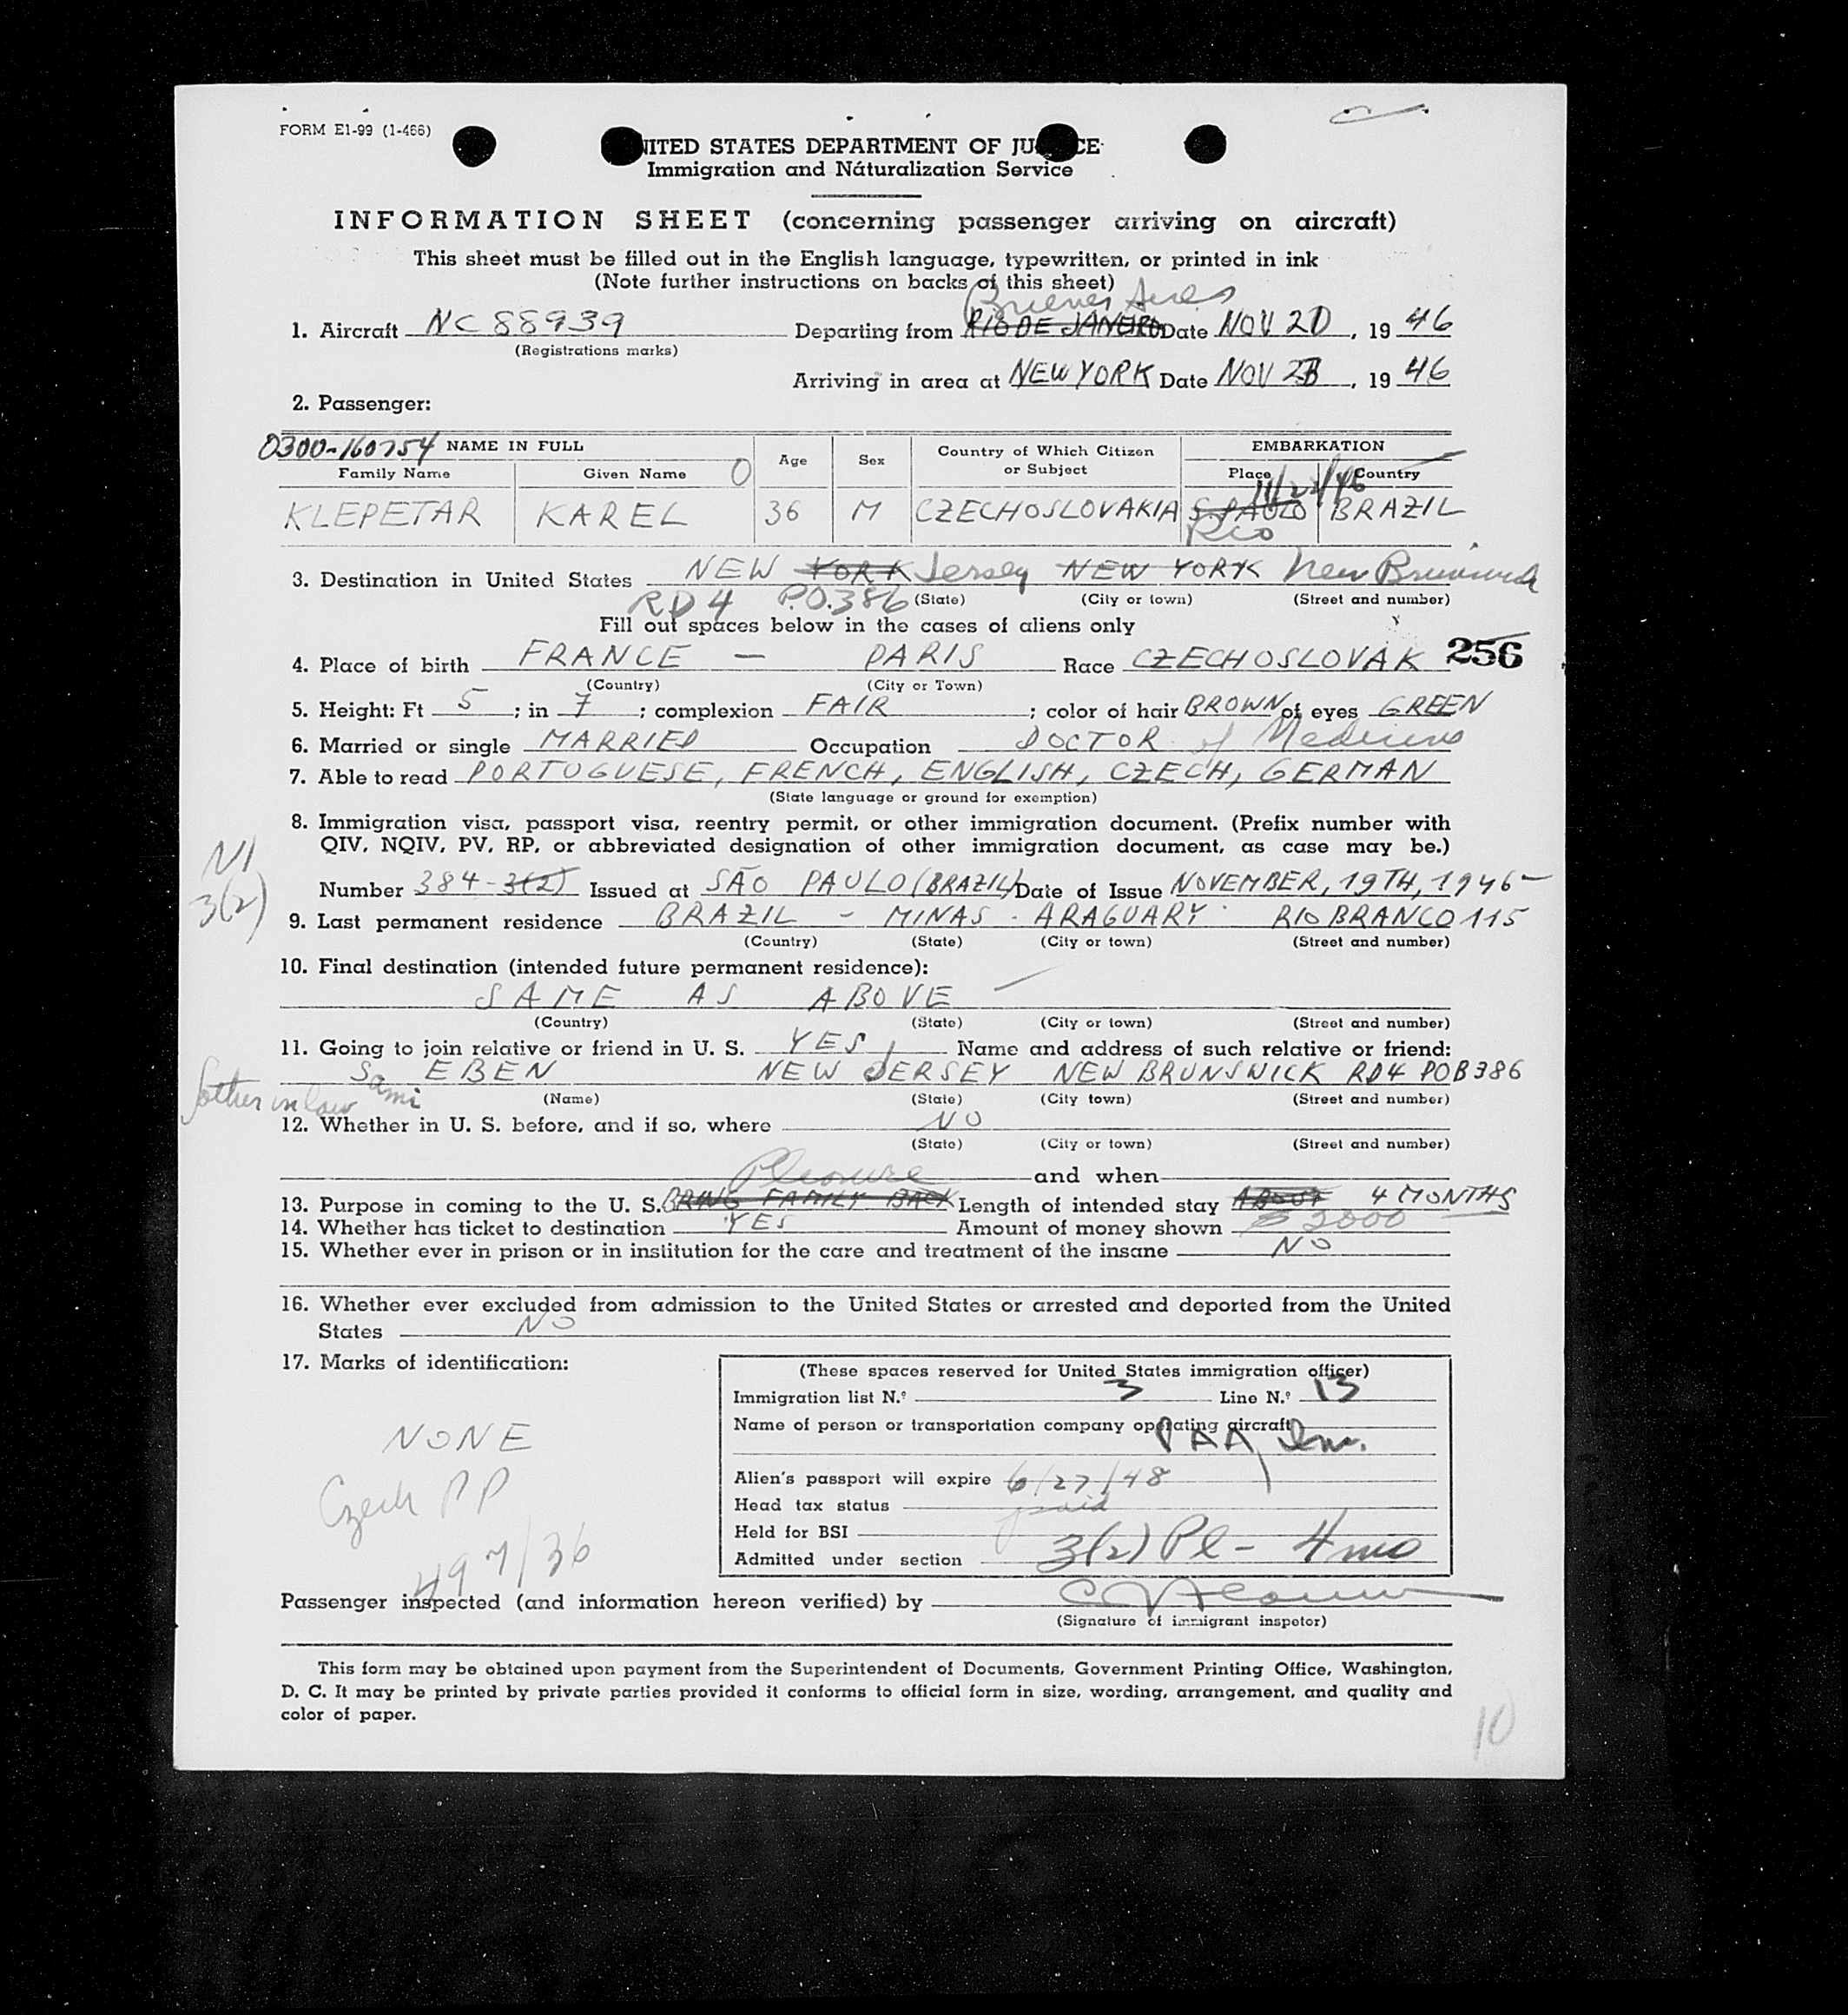 FORM E1-99 (1-466)
UNITED STATES DEPARTMENT OF JUSTICE
Immigration and Náturalization Service
INFORMATION SHEET (concerning passenger arriving on aircraft)
This sheet must be filled out in the English language, typewritten, or printed in ink
(Note further instructions on backs of this sheet)
Buenos Aires
1. Aircraft NC 88939 Departing from RIO DE JANEIRO Date NOV 20, 19 46
(Registrations marks)
Arriving in area at NEW YORK Date NOV 23, 19 46
2. Passenger:
0300-160754 NAME IN FULL Age Sex Country of Which Citizen or Subject EMBARKATION
Family Name Given Name O Place Country
11/22/46
KLEPETAR KAREL 36 M CZECHOSLOVAKIA S. PAULO BRAZIL
Rio
3. Destination in United States NEW YORK Jersey NEW YORK New Brunswick
RD4 P.O.386 (State) (City or town) (Street and number)
Fill out spaces below in the cases of aliens only
4. Place of birth FRANCE — PARIS Race CZECHOSLOVAK 256
(Country) (City or Town)
5. Height: Ft 5 ; in 7 ; complexion FAIR ; color of hair BROWN of eyes GREEN
6. Married or single MARRIED Occupation DOCTOR of Medicine
7. Able to read PORTUGUESE, FRENCH, ENGLISH, CZECH, GERMAN
(State language or ground for exemption)
8. Immigration visa, passport visa, reentry permit, or other immigration document. (Prefix number with
QIV, NQIV, PV, RP, or abbreviated designation of other immigration document, as case may be.)
NI
3(2)
Number 384-3(2) Issued at SÃO PAULO (BRAZIL) Date of Issue NOVEMBER, 19TH, 1946-
9. Last permanent residence BRAZIL - MINAS - ARAGUARY - RIO BRANCO 115
(Country) (State) (City or town) (Street and number)
10. Final destination (intended future permanent residence):
SAME AS ABOVE
(Country) (State) (City or town) (Street and number)
11. Going to join relative or friend in U. S. YES, Name and address of such relative or friend:
Sami EBEN NEW JERSEY NEW BRUNSWICK RD4 POB386
father in law (Name) (State) (City town) (Street and number)
12. Whether in U. S. before, and if so, where NO
(State) (City or town) (Street and number)
Pleasure and when
13. Purpose in coming to the U. S. BRING FAMILY BACK Length of intended stay ABOUT 4 MONTHS
14. Whether has ticket to destination YES Amount of money shown $ 2000
15. Whether ever in prison or in institution for the care and treatment of the insane NO
16. Whether ever excluded from admission to the United States or arrested and deported from the United
States NO
17. Marks of identification:
NONE
Czech PP
497/36
(These spaces reserved for United States immigration officer)
Immigration list N.º 3 Line N.º 13
Name of person or transportation company operating aircraft
PAA, Inc.
Alien's passport will expire 6/27/48
Head tax status paid
Held for BSI
Admitted under section 3(2) Pl - 4 mo
Passenger inspected (and information hereon verified) by
(Signature of immigrant inspetor)
This form may be obtained upon payment from the Superintendent of Documents, Government Printing Office, Washington,
D. C. It may be printed by private parties provided it conforms to official form in size, wording, arrangement, and quality and
color of paper.
10